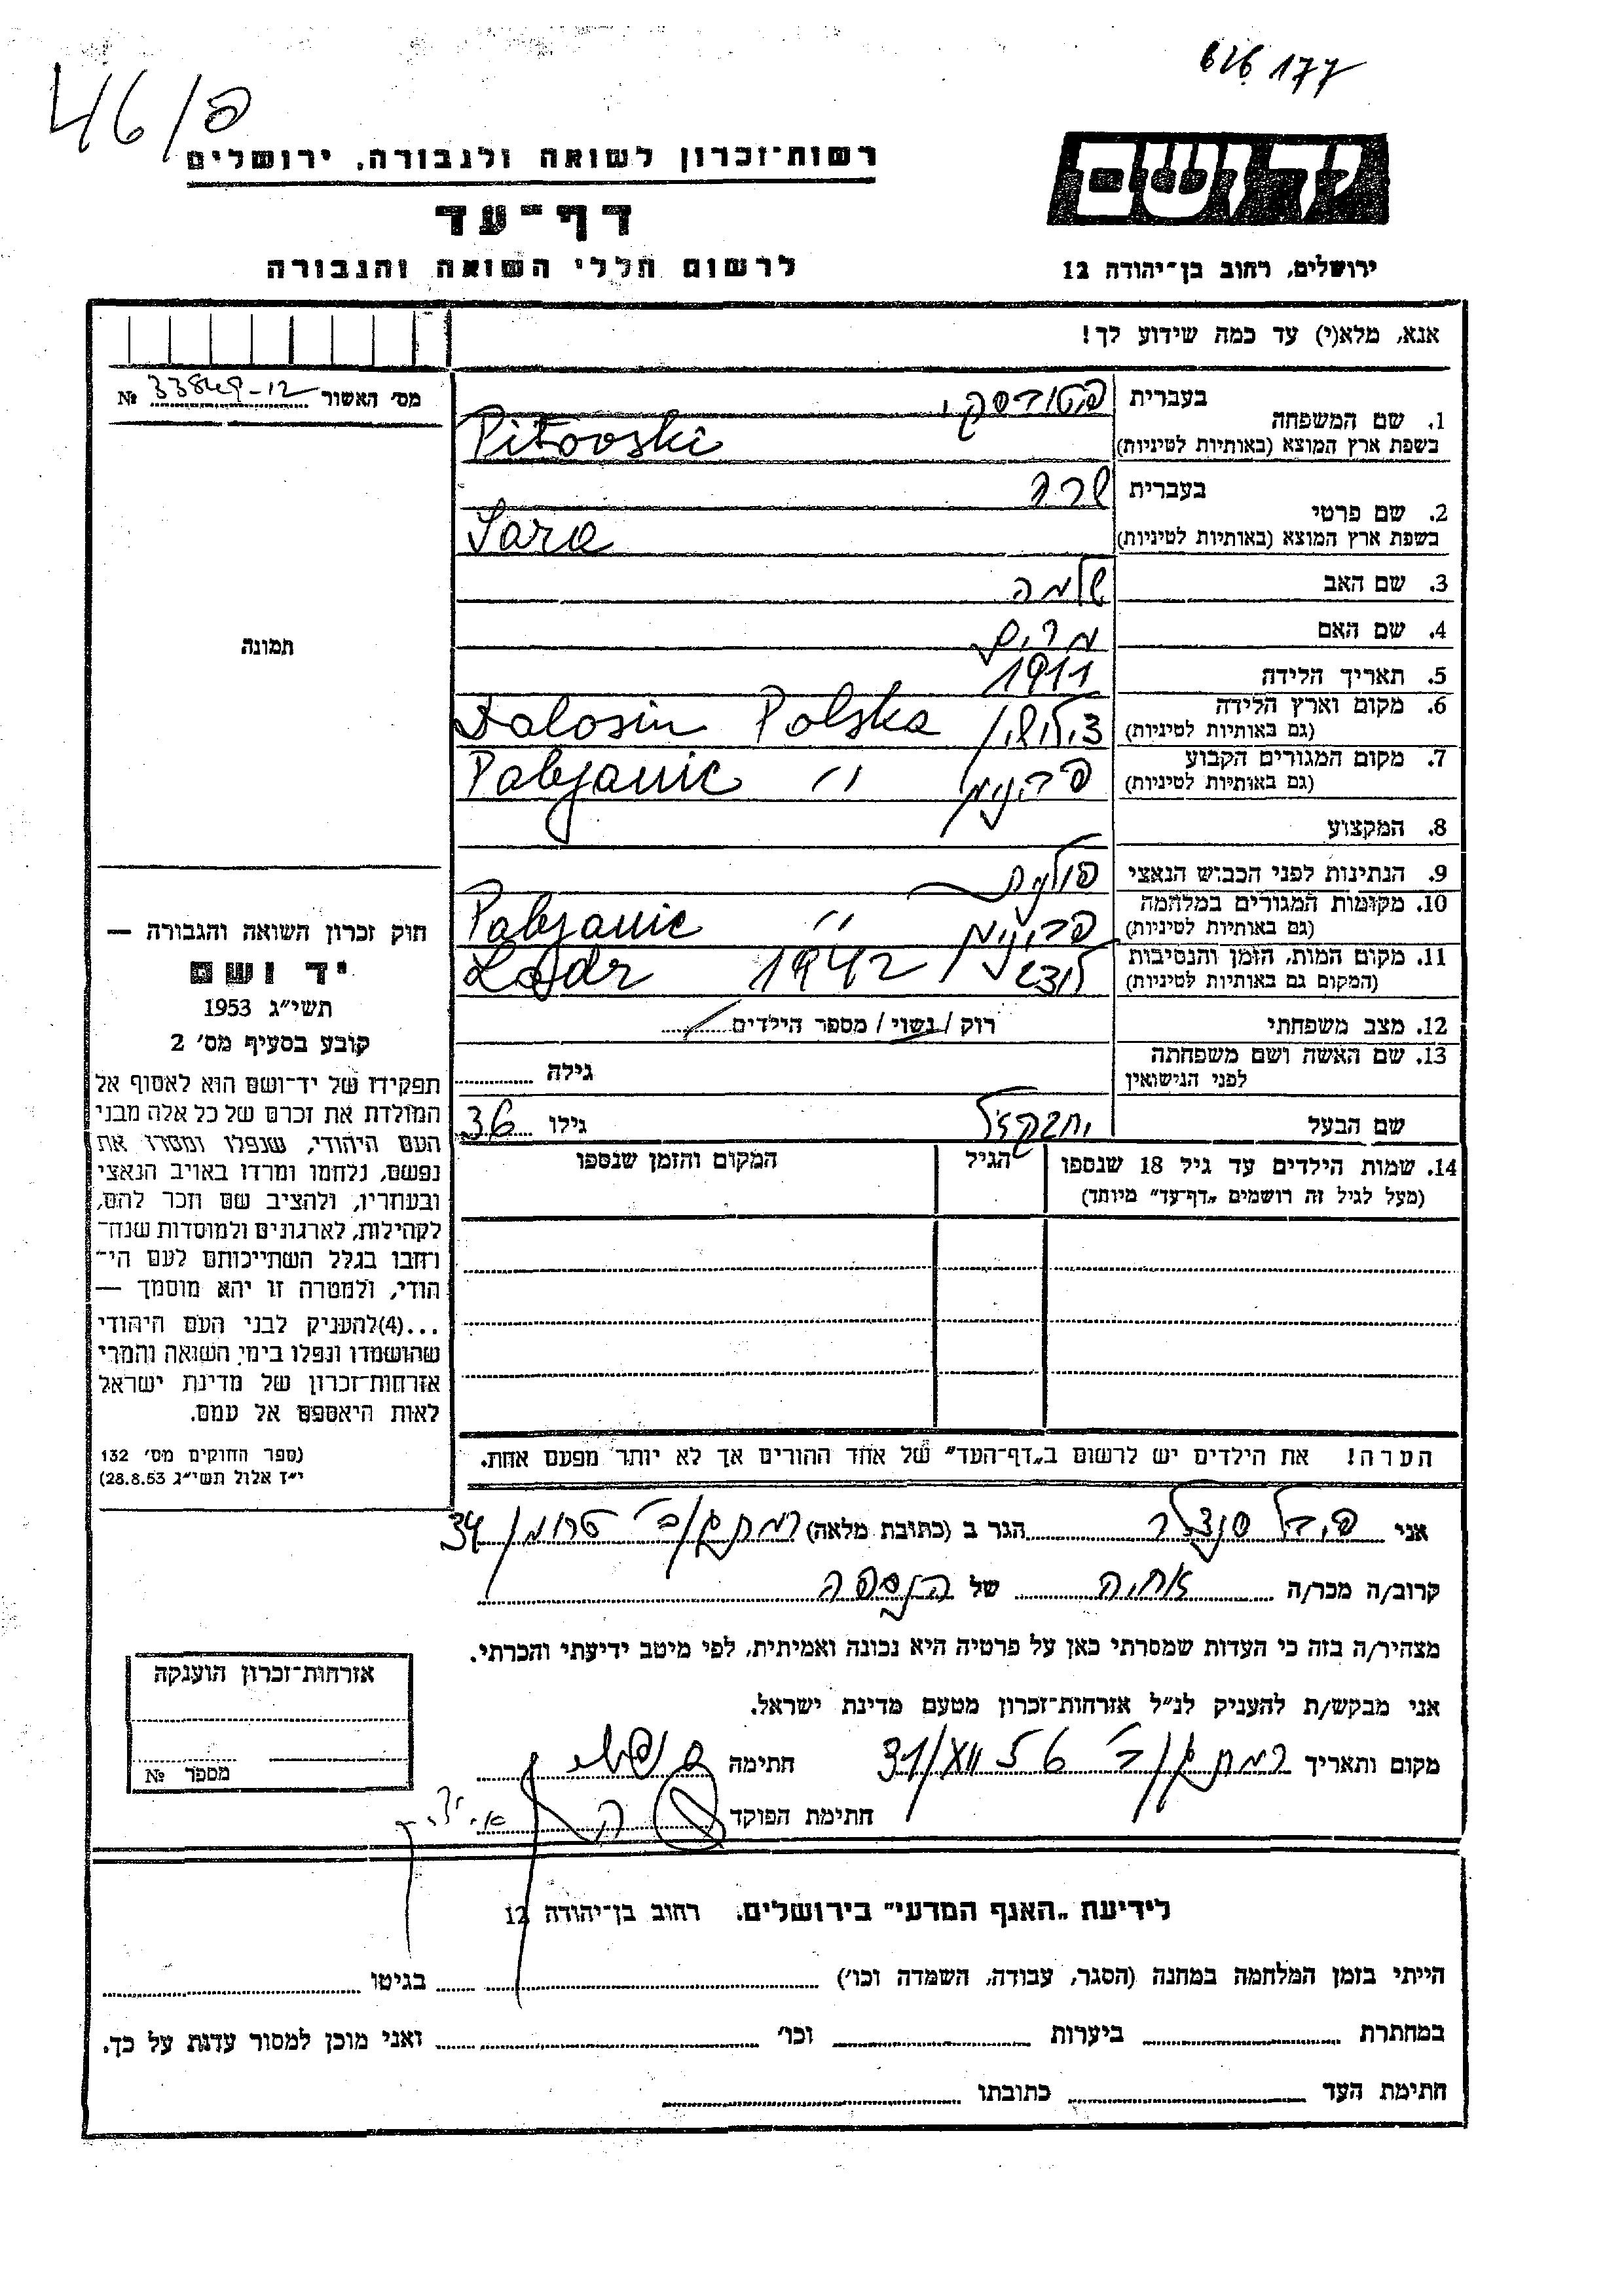 616177
46/פ
יד ושם
רשות־זכרון לשואה ולגבורה, ירושלים
דף־עד
לרשום חללי השואה והגבורה
ירושלים, רחוב בן־יהודה 12
אנא, מלא(י) עד כמה שידוע לך!
מס׳ האשור № 33849-12
1. שם המשפחה
בעברית
בשפת ארץ המוצא (באותיות לטיניות) Pitovski
2. שם פרטי
בעברית שרה
בשפת ארץ המוצא (באותיות לטיניות) Sara
3. שם האב שלמה
4. שם האם מרים
תמונה
5. תאריך הלידה 1911
6. מקום וארץ הלידה
(גם באותיות לטיניות) Polska
7. מקום המגורים הקבוע
(גם באותיות לטיניות) Pabjanic ״
8. המקצוע
9. הנתינות לפני הכבוש הנאצי פולנית
10. מקומות המגורים במלחמה
(גם באותיות לטיניות) Pabjanic ״
11. מקום המות, הזמן והנסיבות
(המקום גם באותיות לטיניות) לודז 1942 Lodz
12. מצב משפחתי רוק / נשוי / מספר הילדים
13. שם האשה ושם משפחתה
לפני הנישואין גילה
שם הבעל יחזקאל גילו 36
14. שמות הילדים עד גיל 18 שנספו הגיל המקום והזמן שנספו
(מעל לגיל זה רושמים „דף־עד״ מיוחד)
הערה! את הילדים יש לרשום ב„דף־העד״ של אחד ההורים אך לא יותר מפעם אחת.
חוק זכרון השואה והגבורה —
יד ושם
תשי״ג 1953
קובע בסעיף מס׳ 2
תפקידו של יד־ושם הוא לאסוף אל
המולדת את זכרם של כל אלה מבני
העם היהודי, שנפלו ומסרו את
נפשם, נלחמו ומרדו באויב הנאצי
ובעוזריו, ולהציב שם וזכר להם,
לקהילות, לארגונים ולמוסדות שנח־
רחבו בגלל השתייכותם לעם הי־
הודי, ולמטרה זו יהא מוסמך —
...(4)להעניק לבני העם היהודי
שהושמדו ונפלו בימי השואה והמרי
אזרחות־זכרון של מדינת ישראל
לאות היאספם אל עמם.
(ספר החוקים מס׳ 132
י״ז אלול תשי״ג 28.8.53)
אני הגר ב (כתובת מלאה) רמת גן 34
קרוב/ה מכר/ה אחיה של הנספה
מצהיר/ה בזה כי העדות שמסרתי כאן על פרטיה היא נכונה ואמיתית, לפי מיטב ידיעתי והכרתי.
אני מבקש/ת להעניק לנ״ל אזרחות־זכרון מטעם מדינת ישראל.
מקום ותאריך רמת גן חתימה
חתימת הפוקד
אזרחות־זכרון הוענקה
מספר №
לידיעת „האגף המדעי״ בירושלים. רחוב בן־יהודה 12
הייתי בזמן המלחמה במחנה (הסגר, עבודה, השמדה וכו׳) בגיטו
במחתרת ביערות וכו׳ ואני מוכן למסור עדות על כך.
חתימת העד כתובתו